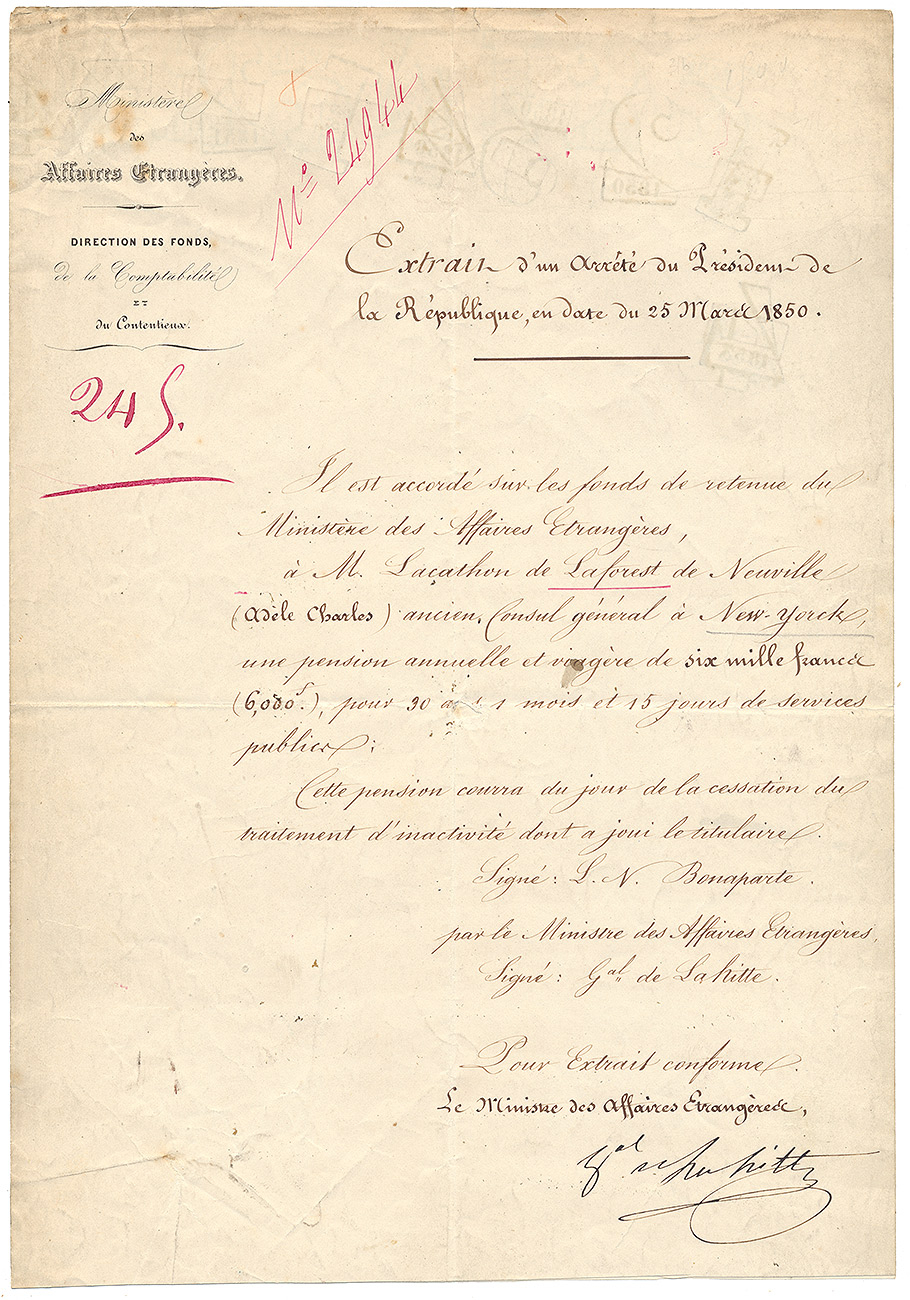 Ministère
des
Affaires Etrangères.
DIRECTION DES FONDS,
de la Comptabilité
ET
du Contentieux.
N° 24944
24 S.
Extrait d'un Arrêté du Président de
la République, en date du 25 Mars 1850.
Il est accordé sur les fonds de retenue du
Ministère des Affaires Etrangères,
à M. Laçathon de Laforest de Neuville
(Adèle Charles) ancien Consul général à New-Yorck,
une pension annuelle et viagère de six mille francs
(6,000f.), pour 30 ans 1 mois et 15 jours de services
publics;
Cette pension courra du jour de la cessation du
traitement d'inactivité dont a joui le titulaire.
Signé: L. N. Bonaparte.
par le Ministre des Affaires Etrangères,
Signé: Gal. de Lahitte.
Pour Extrait conforme
Le Ministre des Affaires Etrangères,
Gal de Lahitte
1850
1853